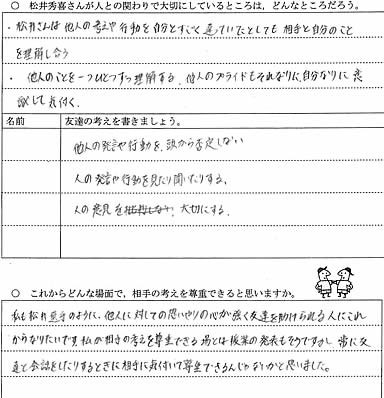 ○ 松井秀喜さんが人との関わりで大切にしているところは，どんなところだろう。
・松井さんは他人の考えや行動を自分とすごく違っていたとしても相手と自分のこと
を理解し合う
・他人のことを一つひとつずつ理解する、他人のプライドもそれなりに、自分なりに意
識して気付く。
名前　友達の考えを書きましょう。
他人の発言や行動を、頭から否定しない
人の発言や行動を見たり聞いたりする、
人の意見を 大切にする、
○ これからどんな場面で，相手の考えを尊重できると思いますか。
私も松井選手のように、他人に対しての思いやりの心が強く友達を助けられる人にこれ
からなりたいです私が相手の考えを尊重できる場とは授業の発表もそうですが 常に友
達と会話をしたりするときに相手に気付いて尊重できるんじゃないかと思いました。